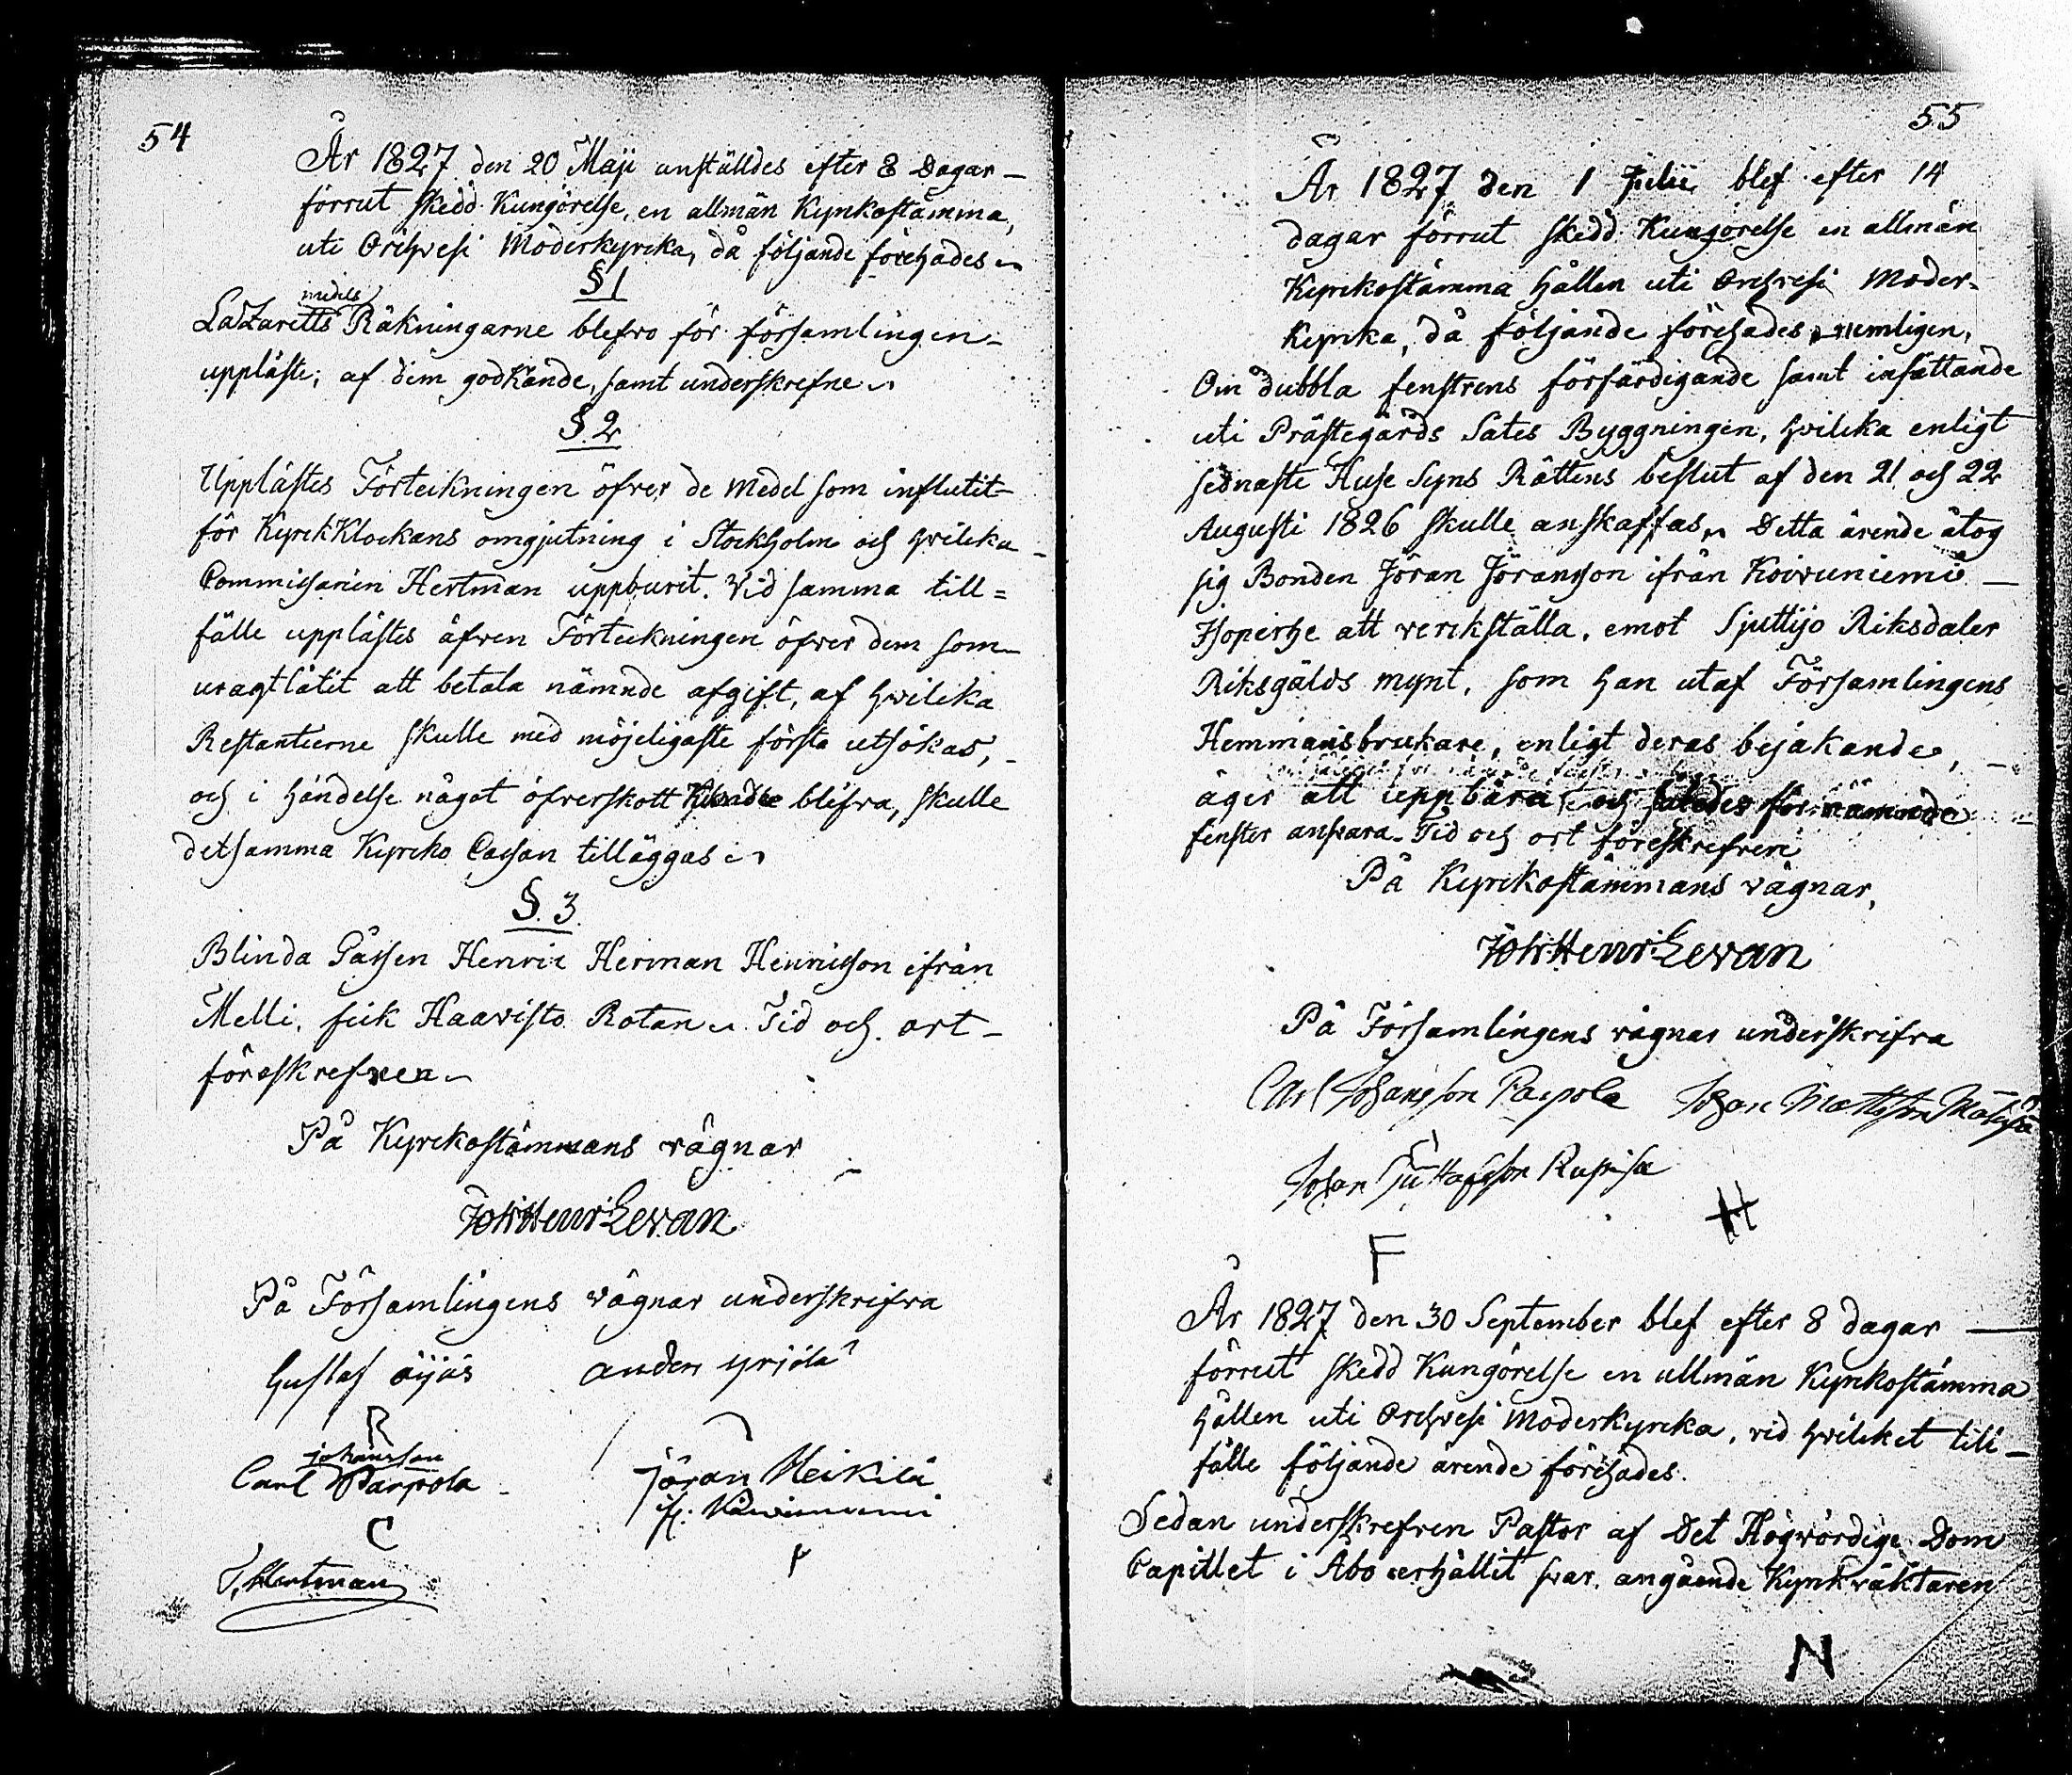 54
År 1827 den 20 Maji anställdes efter 8 Dagar –
förrut skedd Kungörelse, en allmän Kyrkostämma,
uti Orihvesi Moderkyrka, då följande förehades
§ 1
medels
Lazaretts Räkningarne blefvo för församlingen
uppläste; af dem godkände, samt underskrefne
§. 2
Upplästes Förteckningen öfver de Medel som influtit
för KyrkKlockans omgjutning i Stockholm och hvilka
Commissarien Hertman uppburit. Vid samma till =
fälle upplästes äfven Förteckningen öfver dem som
uragtlåtit att betala nämnde afgift, af hvilka
Restantierne skulle med möjeligaste första utsökas,
och i händelse något öfverskott Kunde blifva, skulle
detsamma Kyrko Cassan tilläggas
§. 3
Blinda Gåssen Henric Herman Henricsson ifrån
Melli, fick Haavisto Rotan. Tid och ort –
föreskrefven
På Kyrkostämmans vägnar
Joh Henr Levan
På Församlingens vägnar underskrifva
Gustaf äijäs anders yrjölä
Johansson
Carl Parpola
Jöran Heikilä
C
J. Hertman
55
År 1827 den 1 Julii blef efter 14
dagar förrut skedd Kungörelse en allmän
Kyrkostämma hållen uti Orihvesi Moder-
Kyrka, då följande förehades, nemligen,
Om dubbla fenstrens förfärdigande samt insättande
uti Prästegårds Sätes Byggningen, hvilka enligt
sednaste Huse Syns Rättens beslut af den 21 och 22
Augusti 1826 skulle anskaffas. Detta ärende åtog
sig Bonden Jöran Jöransson ifrån Koivuniemi –
Hoperhe att verkställa, emot Sjuttijo Riksdaler
Riksgälds mynt, som han utaf Församlingens
Hemmansbrukare, enligt deras bejakande,
äger att uppbära och således för nämnde
fenster ansvara. Tid och ort föreskrefven
På Kyrkostämmans vägnar,
Joh Henr Levan
På Församlingens vägnar underskrifva
Carl Johansson Parpola Johan Mattsson
Johan Gustafsson
H
F
År 1827 den 30 September blef efter 8 dagar –
förrut skedd Kungörelse en allmän Kyrkostämma
hållen uti Orihvesi Moderkyrka, vid hvilket till –
fälle följande ärende förehades.
Sedan underskrefven Pastor af Det Högvördige Dom
Capitlet i Åbo erhållit svar, angående Kyrkväktaren
N